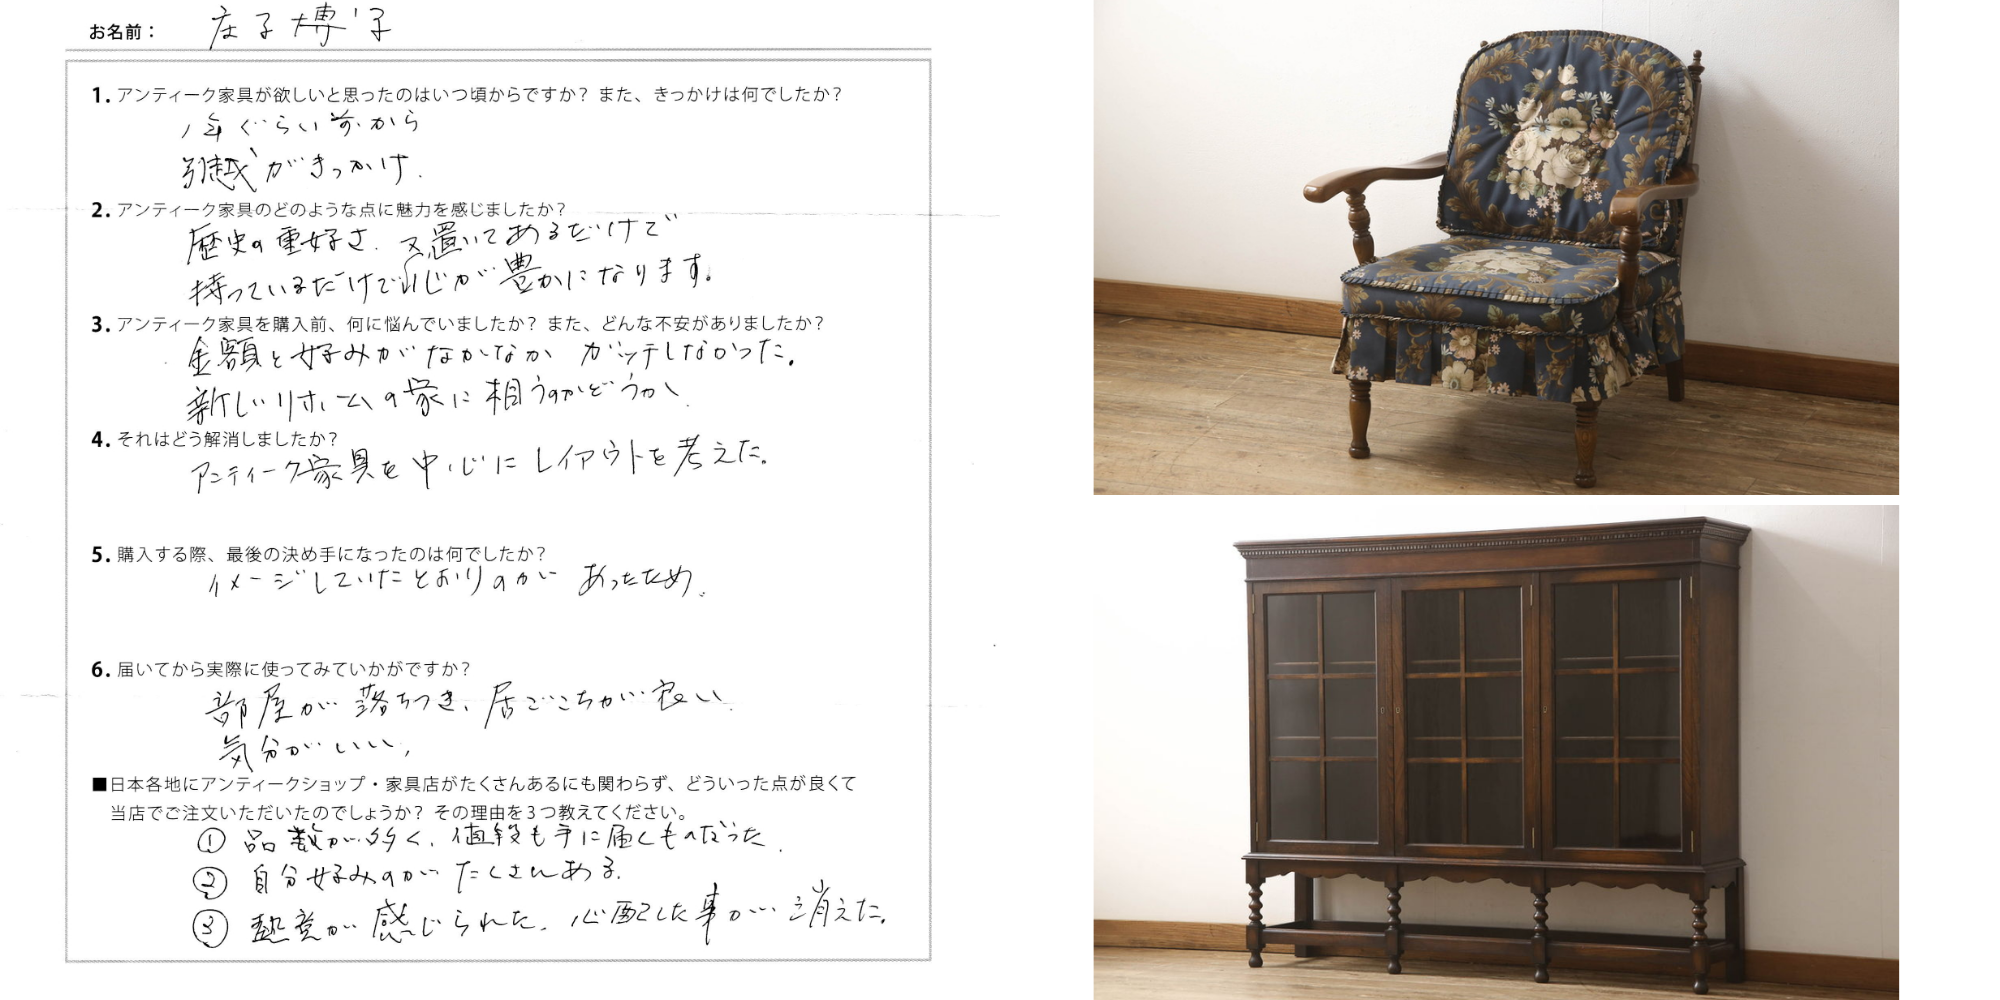 お名前： 庄子博子
1. アンティーク家具が欲しいと思ったのはいつ頃からですか？ また、きっかけは何でしたか？
1年ぐらい前から
引越がきっかけ.
2. アンティーク家具のどのような点に魅力を感じましたか？
歴史の重好さ. 又置いてあるだけで
持っているだけで心が豊かになります。
3. アンティーク家具を購入前、何に悩んでいましたか？ また、どんな不安がありましたか？
金額と好みがなかなか ガッテしなかった。
新しいリホームの家に相うのかどうか、
4. それはどう解消しましたか？
アンティーク家具を中心にレイアウトを考えた。
5. 購入する際、最後の決め手になったのは何でしたか？
イメージしていたとおりのがあったため。
6. 届いてから実際に使ってみていかがですか？
部屋が落ちつき、居ごこちが良い.
気分がいい、
■日本各地にアンティークショップ・家具店がたくさんあるにも関わらず、どういった点が良くて
当店でご注文いただいたのでしょうか？ その理由を３つ教えてください。
① 品数が多く、値段も手に届くものだった.
② 自分好みのがたくさんある.
③ 熱意が感じられた. 心配した事が消えた。